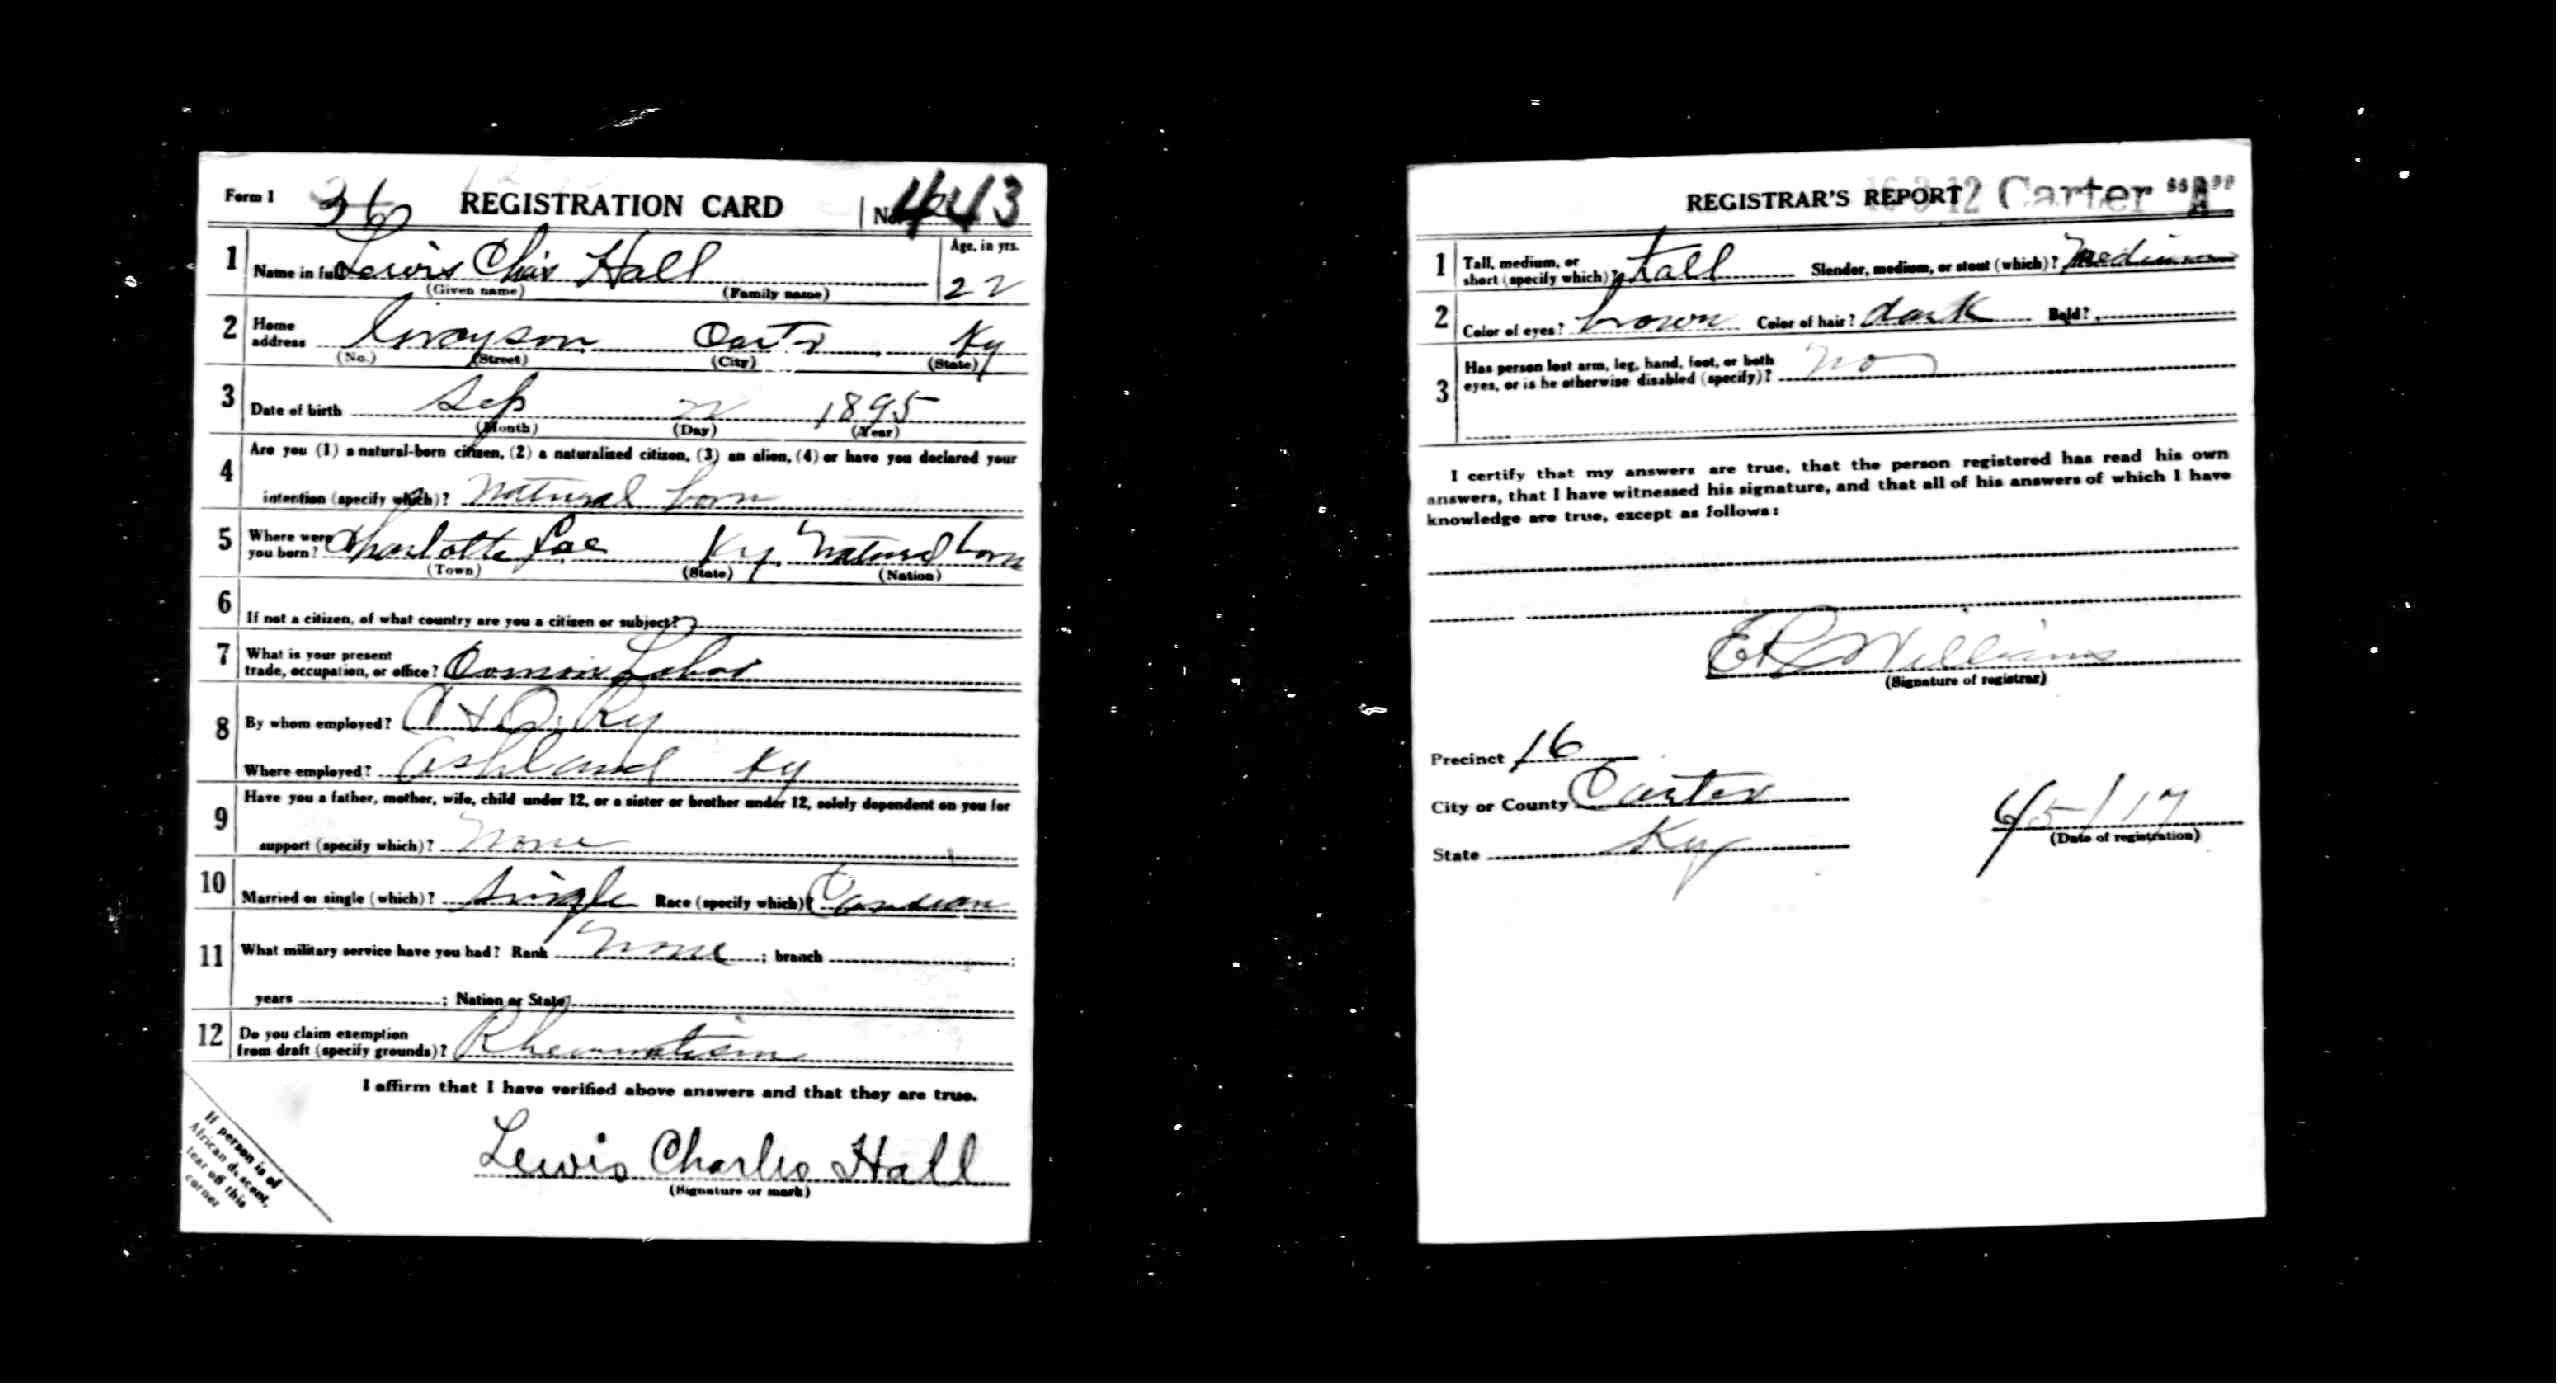 Form 1 36 REGISTRATION CARD No. 443
1 Name in full Lewis Chas Hall Age, in yrs.
(Given name) (Family name) 22
2 Home address Grayson Carter Ky
(No.) (Street) (City) (State)
3 Date of birth Sep 22 1895
(Month) (Day) (Year)
4 Are you (1) a natural-born citizen, (2) a naturalized citizen, (3) an alien, (4) or have you declared your
intention (specify which)? Natural born
5 Where were you born? Charlotte Ky. Natural born
(Town) (State) (Nation)
6 If not a citizen, of what country are you a citizen or subject?
7 What is your present
trade, occupation, or office? Comon Labor
8 By whom employed? C & O. Ry
Where employed? Ashland Ky
9 Have you a father, mother, wife, child under 12, or a sister or brother under 12, solely dependent on you for
support (specify which)? None
10 Married or single (which)? Single Race (specify which)?
11 What military service have you had? Rank None ; branch ;
years ; Nation or State
12 Do you claim exemption
from draft (specify grounds)? Rheumatism
I affirm that I have verified above answers and that they are true.
Lewis Charles Hall
(Signature or mark)
If person is of
African descent,
tear off this
corner
REGISTRAR'S REPORT 16-3-12 Carter "A"
1 Tall, medium, or
short (specify which)? tall Slender, medium, or stout (which)? Medium
2 Color of eyes? brown Color of hair? dark Bald?
3 Has person lost arm, leg, hand, foot, or both
eyes, or is he otherwise disabled (specify)? No
I certify that my answers are true, that the person registered has read his own
answers, that I have witnessed his signature, and that all of his answers of which I have
knowledge are true, except as follows:
Williams
(Signature of registrar)
Precinct 16
City or County Carter
State Ky
6/5/17
(Date of registration)